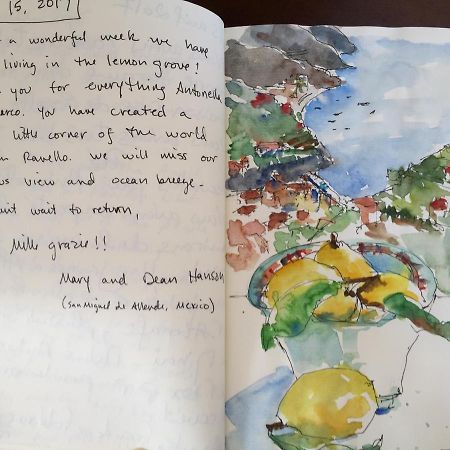 15, 2017
a wonderful week we have
living in the lemon grove!
you for everything Antonella
arco. You have created a
little corner of the world
Ravello. We will miss our
view and ocean breeze-
wait to return,
Mille grazie!!
Mary and Dean Hansen
(San Miguel de Allende, Mexico)